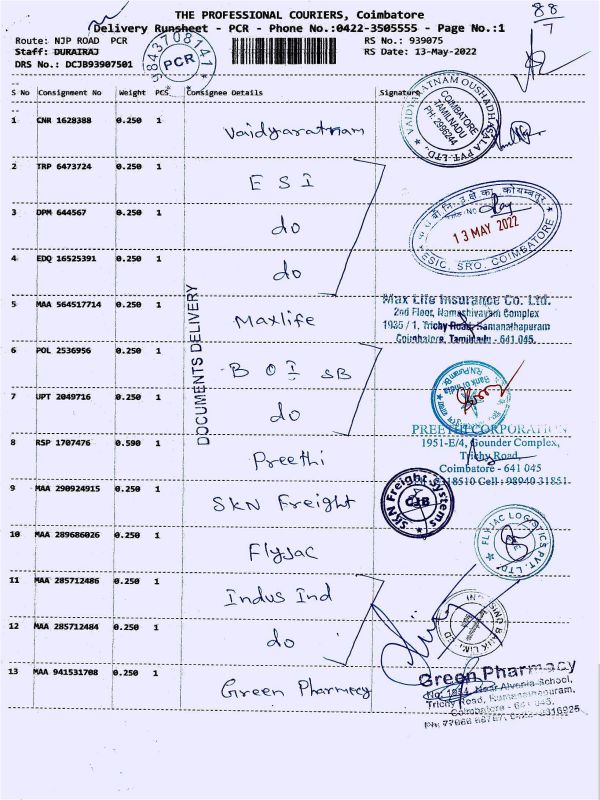 THE PROFESSIONAL COURIERS, Coimbatore
88
7
Delivery Runsheet - PCR - Phone No.:0422-3505555 - Page No.:1
Route: NJP ROAD PCR
RS No.: 939075
Staff: DURAIRAJ
RS Date: 13-May-2022
DRS No.: DCJB93907501
9843708141
PCR
S No Consignment No Weight PCS Consignee Details Signature
1 CNR 1628388 0.250 1 Vaidyaratnam
VAIDYARATNAM OUSHADHASALA PVT. LTD.,
COIMBATORE
TAMILNADU
PH: 2996244
2 TRP 6473724 0.250 1 E S I
3 DPM 644567 0.250 1 do
13 MAY 2022
ESIC, SRO, COIMBATORE
4 EDQ 16525391 0.250 1 do
DOCUMENTS DELIVERY
5 MAA 564517714 0.250 1 Maxlife
Max Life Insurance Co. Ltd.
2nd Floor, Ramashivayam Complex
1935 / 1, Trichy Road, Ramanathapuram
Coimbatore, Tamilnadu - 641 045.
6 POL 2536956 0.250 1 B O I SB
Bank of India
7 UPT 2049716 0.250 1 do
PREETHI CORPORATION
1951-E/4, Gounder Complex,
Trichy Road,
Coimbatore - 641 045
8 RSP 1707476 0.590 1 Preethi
Cell : 98940 31851
9 MAA 290924915 0.250 1 SKN Freight
SKN Freight Systems
CJB
10 MAA 289686026 0.250 1 Flyjac
FLYJAC LOGISTICS PVT. LTD.
11 MAA 285712486 0.250 1 Indus Ind
12 MAA 285712484 0.250 1 do
13 MAA 941531708 0.250 1 Green Pharmacy
Green Pharmacy
Near Alvernia School,
Trichy Road, Ramanathapuram,
Coimbatore - 641 045.